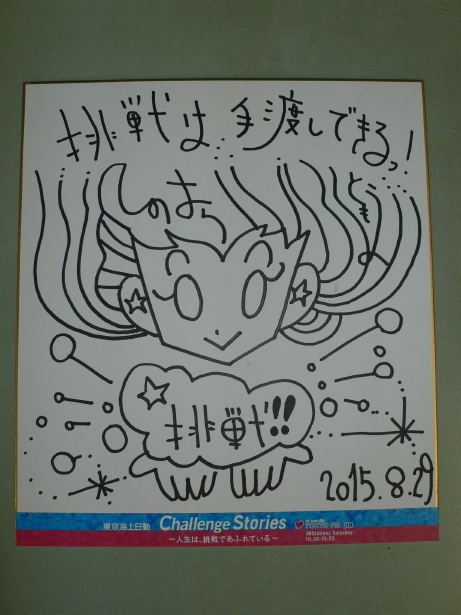 挑戦は手渡しできるっ！
しのはら
ともえ
挑戦!!
2015.8.29
東京海上日動 Challenge Stories
TOKYO FM JFN
38Stations Saturday
15:30-15:55
～人生は、挑戦であふれている～